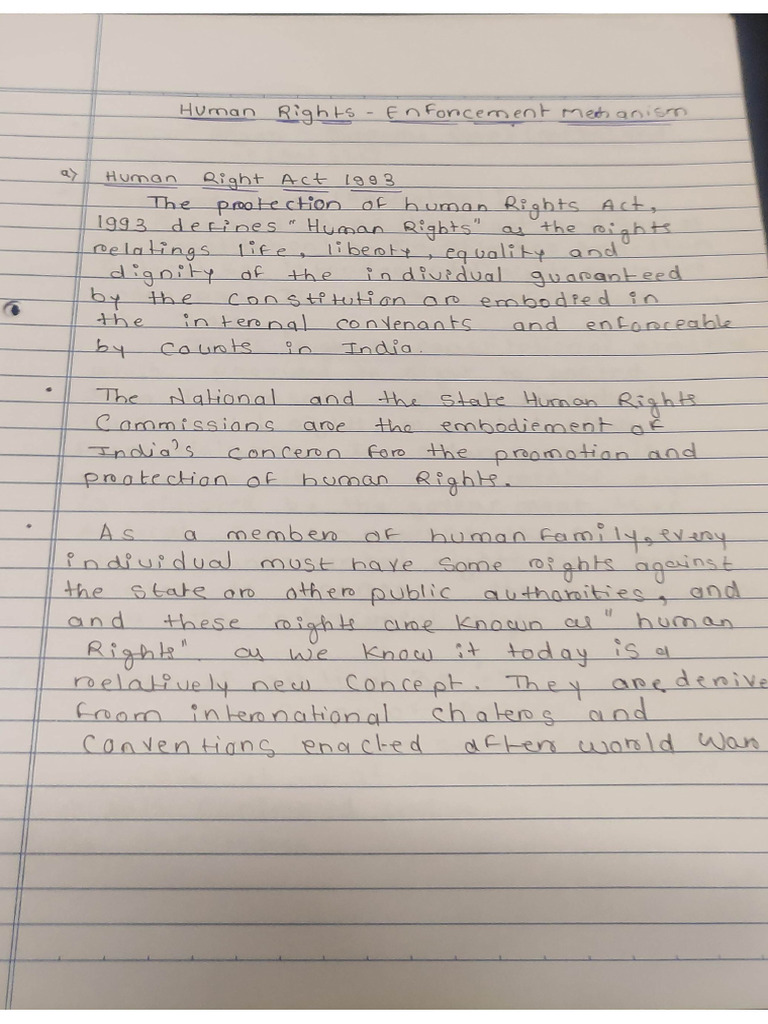 Human Rights - Enforcement Mechanism
a) Human Right Act 1993
The protection of human Rights Act,
1993 defines "Human Rights" as the rights
relatings life, liberty, equality and
dignity of the individual guaranteed
by the constitution or embodied in
the internal convenants and enforceable
by courts in India.
• The National and the State Human Rights
Commissions are the embodiement of
India's concern for the promotion and
protection of human Rights.
• As a member of human family, every
individual must have some rights against
the state or other public authorities, and
and these rights are known as "human
Rights". as we know it today is a
relatively new concept. They are derive
from international chaters and
conventions enacted after world war